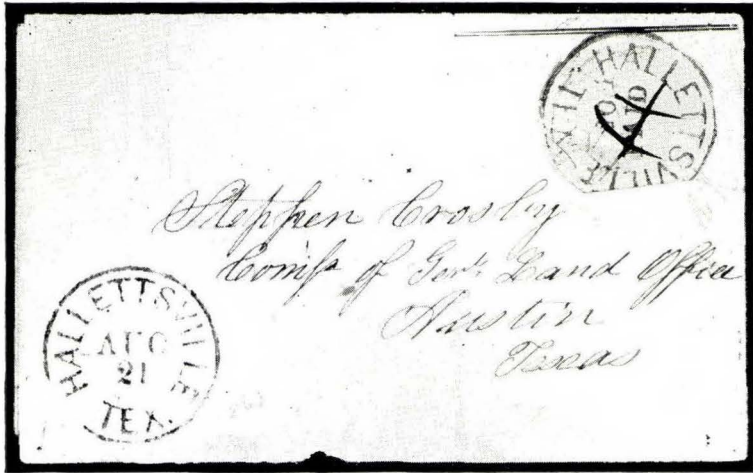 HALLETTSVILLE TEX
PAID
Stephen Crosby
Comr of Genl Land Office
Austin
Texas
HALLETTSVILLE
AUG
21
TEX.